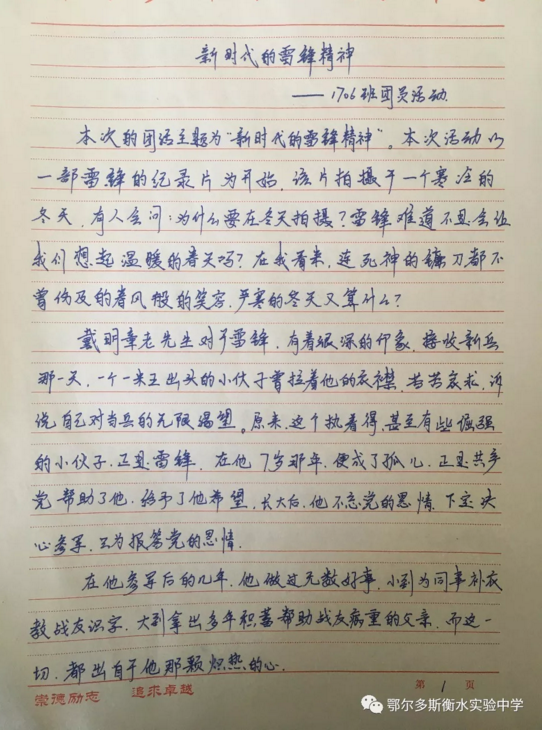 新时代的雷锋精神
——1706班团员活动
本次的团活主题为“新时代的雷锋精神”。本次活动以
一部雷锋的纪录片为开始,该片拍摄于一个寒冷的
冬天,有人会问:为什么要在冬天拍摄?雷锋难道不是会让
我们想起温暖的春天吗?在我看来,连死神的镰刀都不
曾伤及的春风般的笑容,严寒的冬天又算什么?
戴明章老先生对于雷锋,有着很深的印象,接收新兵
那一天,一个一米五出头的小伙子曾拉着他的衣襟,苦苦哀求,诉
说自己对当兵的无限渴望。原来,这个执着得,甚至有些倔强
的小伙子,正是雷锋,在他7岁那年,便成了孤儿,正是共产
党帮助了他,给予了他希望,长大后,他不忘党的恩情,下定决
心参军,只为报答党的恩情.
在他参军后的几年,他做过无数好事,小到为同事补衣
教战友识字,大到拿出多年积蓄帮助战友病重的父亲,而这一
切,都出自于他那颗炽热的心.
崇德励志 追求卓越 第 1 页
鄂尔多斯衡水实验中学